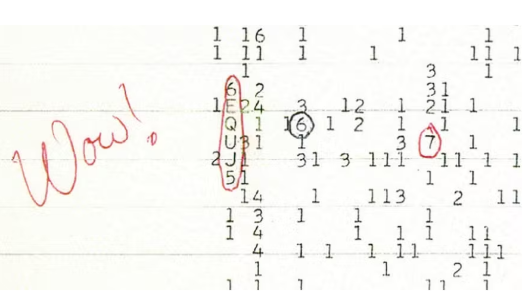 1 16 1 1 1
1 11 1 1 11 1
1 3 1
6 2 31
1 E 24 3 12 1 21 1
Q 1 1 6 1 2 1 1 1
Wow! U 31 1 3 7 1
2 J 1 31 3 111 11 1 1
5 1 1 1
14 1 113 2 11
1 3 1 1 1
1 4 1 1 1 11
4 1 1 1 11 111
1 1 2 1
1 1 1 11 1